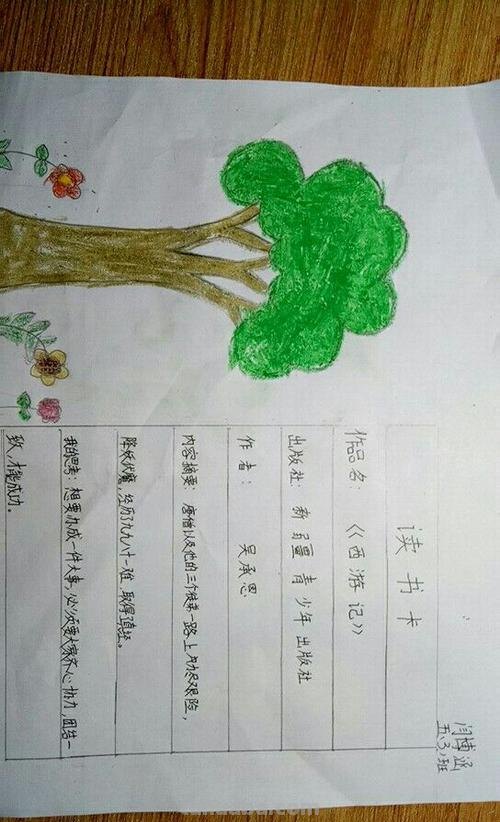 闫博涵
五、3、班
读书卡
作品名：《西游记》
出版社：新疆青少年出版社
作者：吴承恩
内容摘要：唐僧以及他的三个徒弟一路上历尽艰险，
降妖伏魔，经历了九九八十一难，取得了真经。
我的思考：想要办成一件大事，必须要大家齐心协力，团结一
致，才能成功。